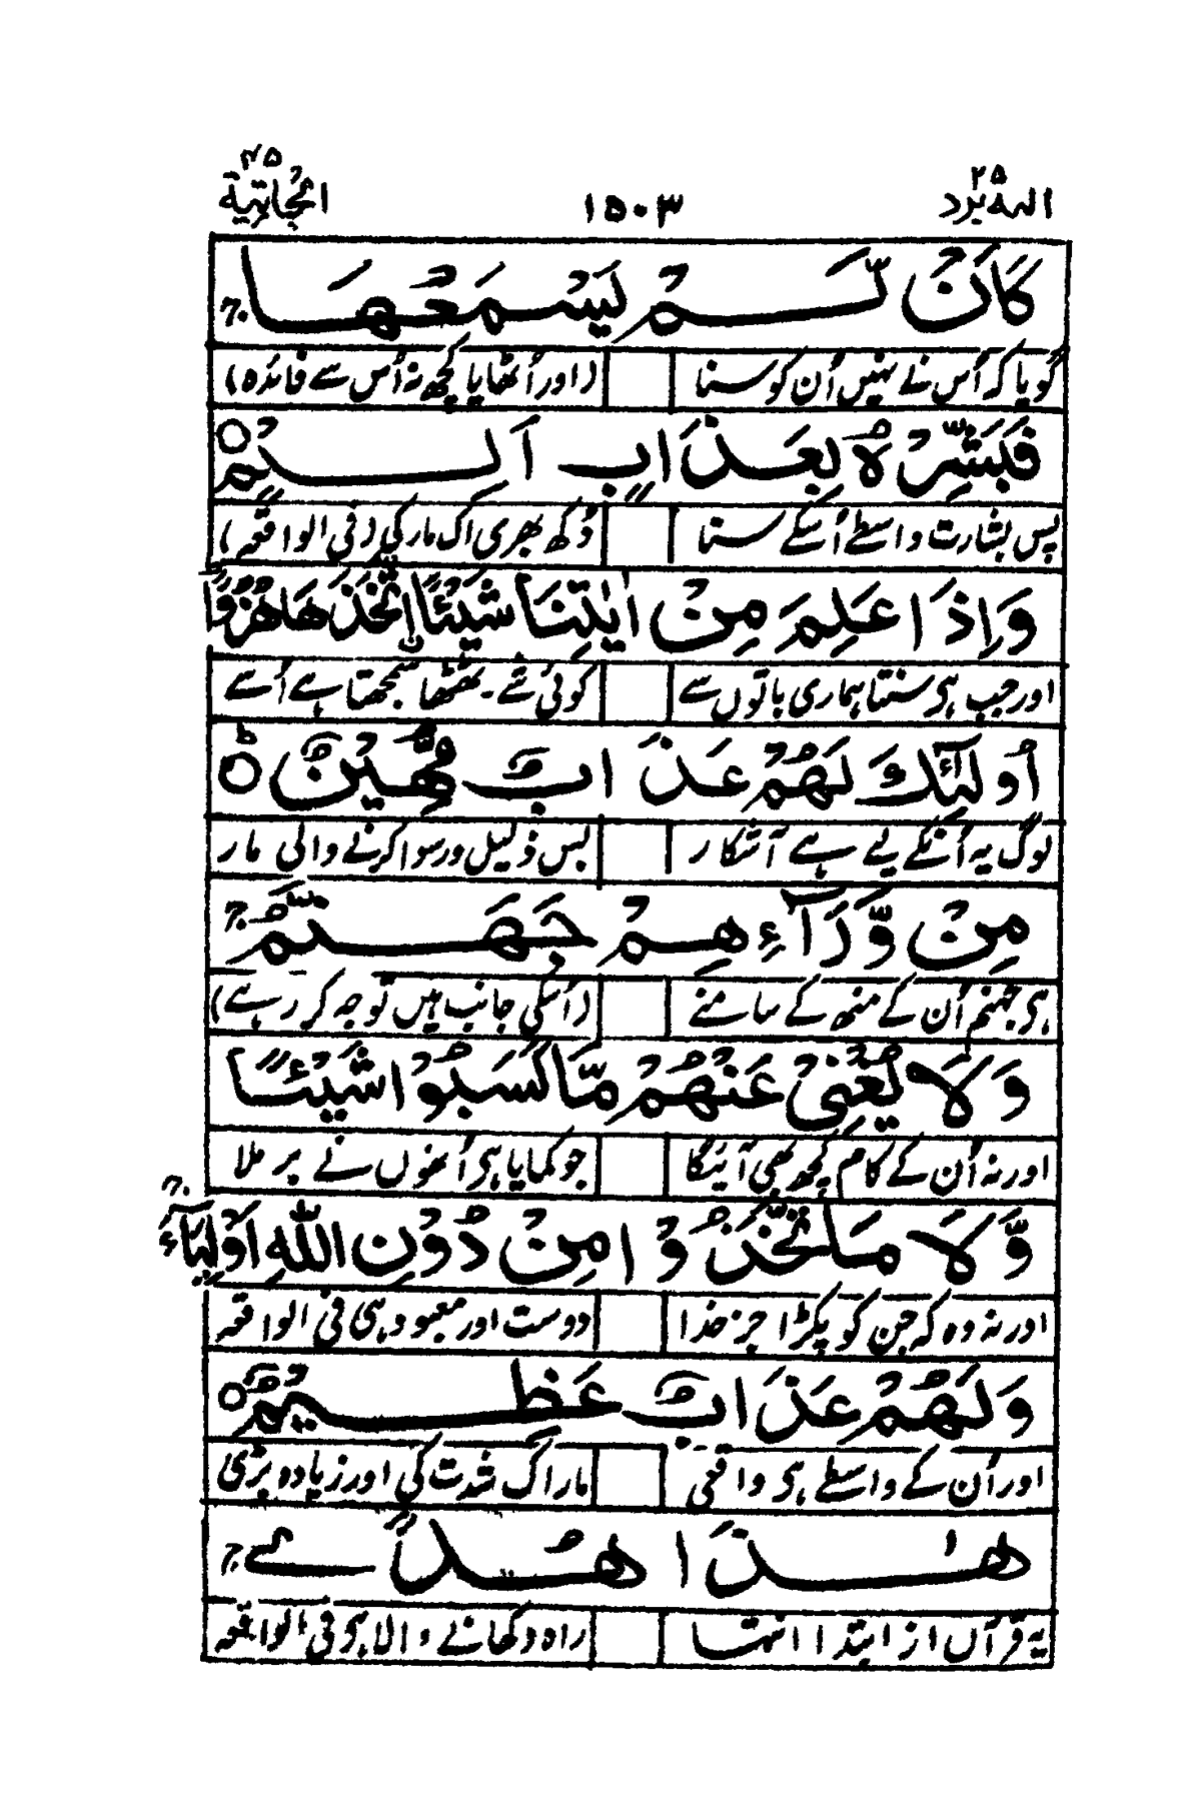 الیه یرد ۲۵ ۱۵۰۳ الجاثیة ۴۵
كَاَنْ لَّمْ يَسْمَعْهَا ۚ
گویا کہ اُس نے نہیں اُن کو سنا (اور اُٹھایا کچھ نہ اُس سے فائدہ)
فَبَشِّرْهُ بِعَذَابٍ اَلِيْمٍ ○
پس بشارت واسطے اُسکے سنا دُکھ بھری اک مار کی (فی الواقعہ)
وَاِذَا عَلِمَ مِنْ اٰيٰتِنَا شَيْئًا اتَّخَذَهَا هُزُوًا ؕ
اور جب ہی سنتا ہماری باتوں سے کوئی شے۔ ٹھٹھا سمجھتا ہے اُسے
اُولٰٓئِكَ لَهُمْ عَذَابٌ مُّهِيْنٌ ○ؕ
لوگ یہ اُنکے لیے ہے آشکار بس ذلیل و رسوا کرنے والی مار
مِنْ وَّرَآءِهِمْ جَهَنَّمُ ۚ
ہی جہنم اُن کے منھ کے سامنے (اُسکی جانب ہیں توجہ کر رہے)
وَلَا يُغْنِيْ عَنْهُمْ مَّا كَسَبُوْا شَيْئًا
اور نہ اُن کے کام کچھ بھی آئیگا جو کمایا ہی اُنھوں نے بر ملا
وَّلَا مَا اتَّخَذُوْا مِنْ دُوْنِ اللّٰهِ اَوْلِيَآءَ ۚ
اور نہ وہ کہ جن کو پکڑا جز خدا دوست اور معبود ہی فی الواقعہ
وَلَهُمْ عَذَابٌ عَظِيْمٌ ○
اور اُن کے واسطے ہی واقعی مار اک شدت کی اور زیادہ بڑی
هٰذَا هُدًى ۚ
یہ قرآں از ابتدا انتہا راہ دکھانے والا ہی فی الواقعہ